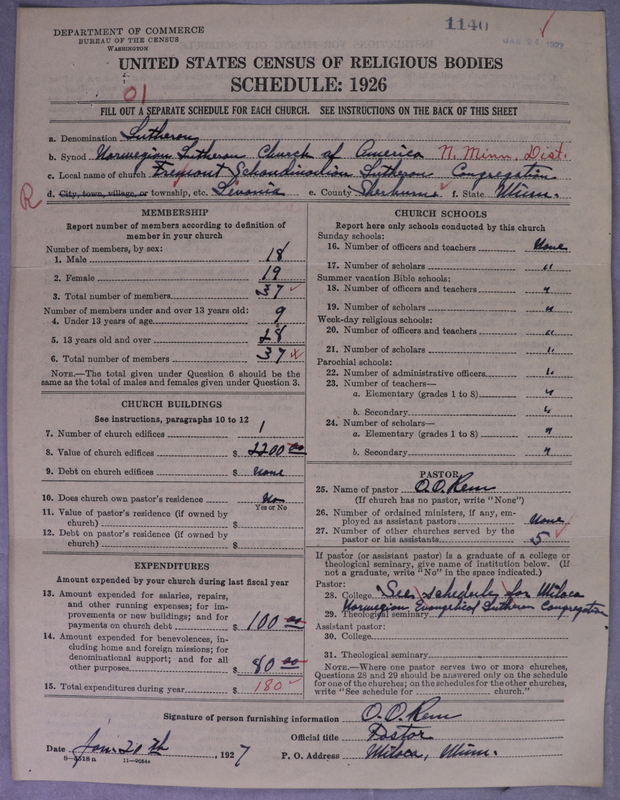 1140
DEPARTMENT OF COMMERCE
BUREAU OF THE CENSUS
WASHINGTON
UNITED STATES CENSUS OF RELIGIOUS BODIES
SCHEDULE: 1926
01
FILL OUT A SEPARATE SCHEDULE FOR EACH CHURCH. SEE INSTRUCTIONS ON THE BACK OF THIS SHEET
a. Denomination Lutheran
b. Synod Norwegian Lutheran Church of America N. Minn. Dist.
c. Local name of church Fremont Scandinavian Lutheran Congregation
R
d. City, town, village, or township, etc. Livonia e. County Sherburne f. State Minn.
MEMBERSHIP
Report number of members according to definition of
member in your church
Number of members, by sex:
1. Male 18
2. Female 19
3. Total number of members 37
Number of members under and over 13 years old:
4. Under 13 years of age 9
5. 13 years old and over 28
6. Total number of members 37
NOTE.—The total given under Question 6 should be
same as the total of males and females given under Question 3.
CHURCH BUILDINGS
See instructions, paragraphs 10 to 12
7. Number of church edifices 1
8. Value of church edifices $ 2200 00
9. Debt on church edifices $ none
10. Does church own pastor's residence
Yes or No
11. Value of pastor's residence (if owned by
church) $
12. Debt on pastor's residence (if owned by
church) $
EXPENDITURES
Amount expended by your church during last fiscal year
13. Amount expended for salaries, repairs,
and other running expenses; for im-
provements or new buildings; and for
payments on church debt $ 100 00
14. Amount expended for benevolences, in-
cluding home and foreign missions; for
denominational support; and for all
other purposes $ 80 00
15. Total expenditures during year $ 180
CHURCH SCHOOLS
Report here only schools conducted by this church
Sunday schools:
16. Number of officers and teachers None
17. Number of scholars "
Summer vacation Bible schools:
18. Number of officers and teachers "
19. Number of scholars "
Week-day religious schools:
20. Number of officers and teachers "
21. Number of scholars "
Parochial schools:
22. Number of administrative officers "
23. Number of teachers—
a. Elementary (grades 1 to 8) "
b. Secondary "
24. Number of scholars—
a. Elementary (grades 1 to 8) "
b. Secondary "
PASTOR
25. Name of pastor O. O. Rem
(If church has no pastor, write "None")
26. Number of ordained ministers, if any, em-
ployed as assistant pastors None
27. Number of other churches served by the
pastor or his assistants 5
If pastor (or assistant pastor) is a graduate of a college or
theological seminary, give name of institution below. (If
not a graduate, write "No" in the space indicated.)
Pastor:
28. College See schedule for Milaca
Norwegian Evangelical Lutheran Congregation
29. Theological seminary
Assistant pastor:
30. College
31. Theological seminary
NOTE.—Where one pastor serves two or more churches,
Questions 28 and 29 should be answered only on the schedule
for one of the churches; on the schedules for the other churches,
write "See schedule for church."
Signature of person furnishing information O. O. Rem
Official title Pastor
Date Jan. 20th, 1927 P. O. Address Milaca, Minn.